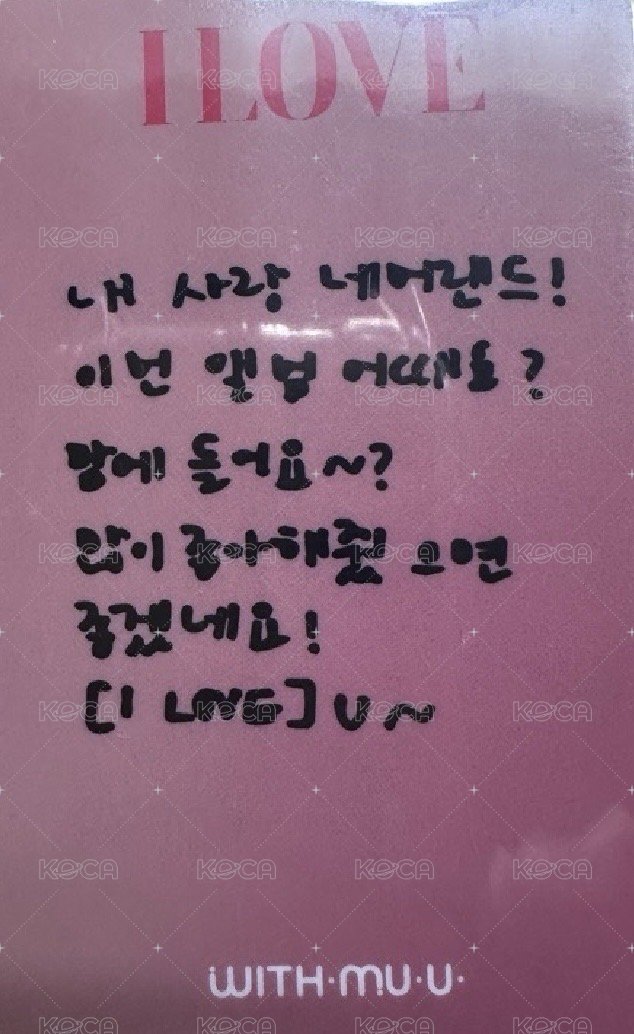 I LOVE
내 사랑 네버랜드!
이번 앨범 어때요?
맘에 들어요~?
많이 좋아해줬으면
좋겠네요!
[I LOVE] U~
WITH·MU·U·
KOCA